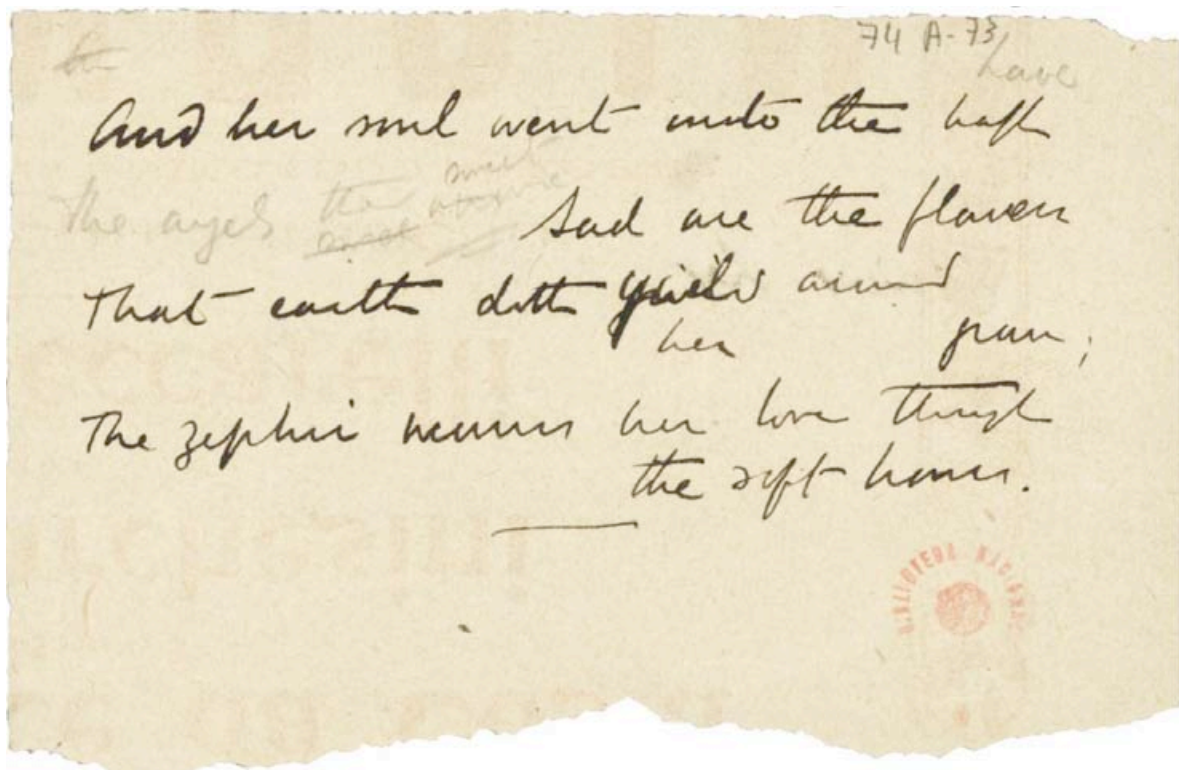 74 A-73
have
And her soul went unto the
The angels the sweet
Sad are the flowers
That earth doth yield around
her
The zephir mourns her love through
the soft hours.
BIBLIOTECA NACIONAL